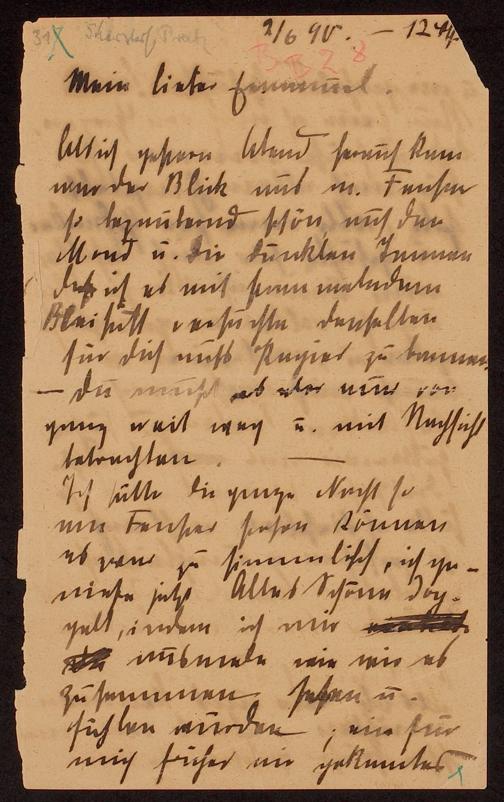 31 2/6 90. — 12
BB28
Mein lieber Emanuel.
Als ich gestern Abend herauf kam
war der Blick aus m. Fenster
so bezaubernd schön auf den
Mond u. die dunklen Tannen
daß ich es mit
Bleistift versuchte denselben
für dich aufs Papier zu bannen
— du mußt es aber nur von
ganz weit weg u. mit Nachsicht
betrachten. —
Ich hätte die ganze Nacht so
am Fenster stehen können
es war zu himmlisch, ich ge-
nieße jetzt Alles Schöne dop-
pelt, indem ich mir
ausmale wie wir es
zusammen sehen u.
fühlen würden, ein für
mich früher nie gekanntes